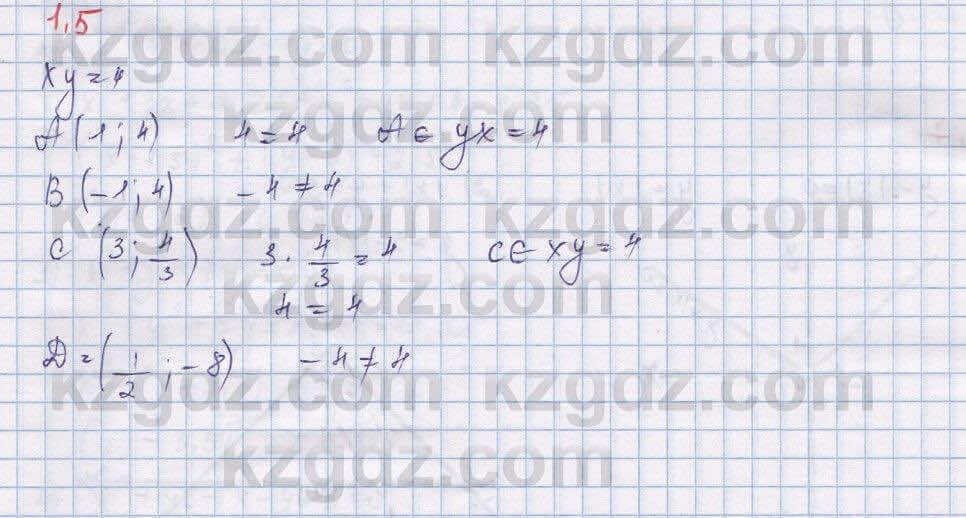 1.5
xy = 4
A (1; 4) 4 = 4 A ∈ yx = 4
B (-1; 4) -4 ≠ 4
C (3; 4/3) 3 · 4/3 = 4 C ∈ xy = 4
4 = 4
D = (1/2; -8) -4 ≠ 4
kzgdz.com kzgdz.com
kzgdz.com
kzgdz.com kzgdz.com
kzgdz.com
kzgdz.com kzgdz.com
kzgdz.com